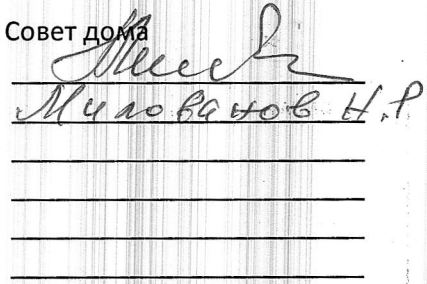 Совет дома
Милованов Н.Р